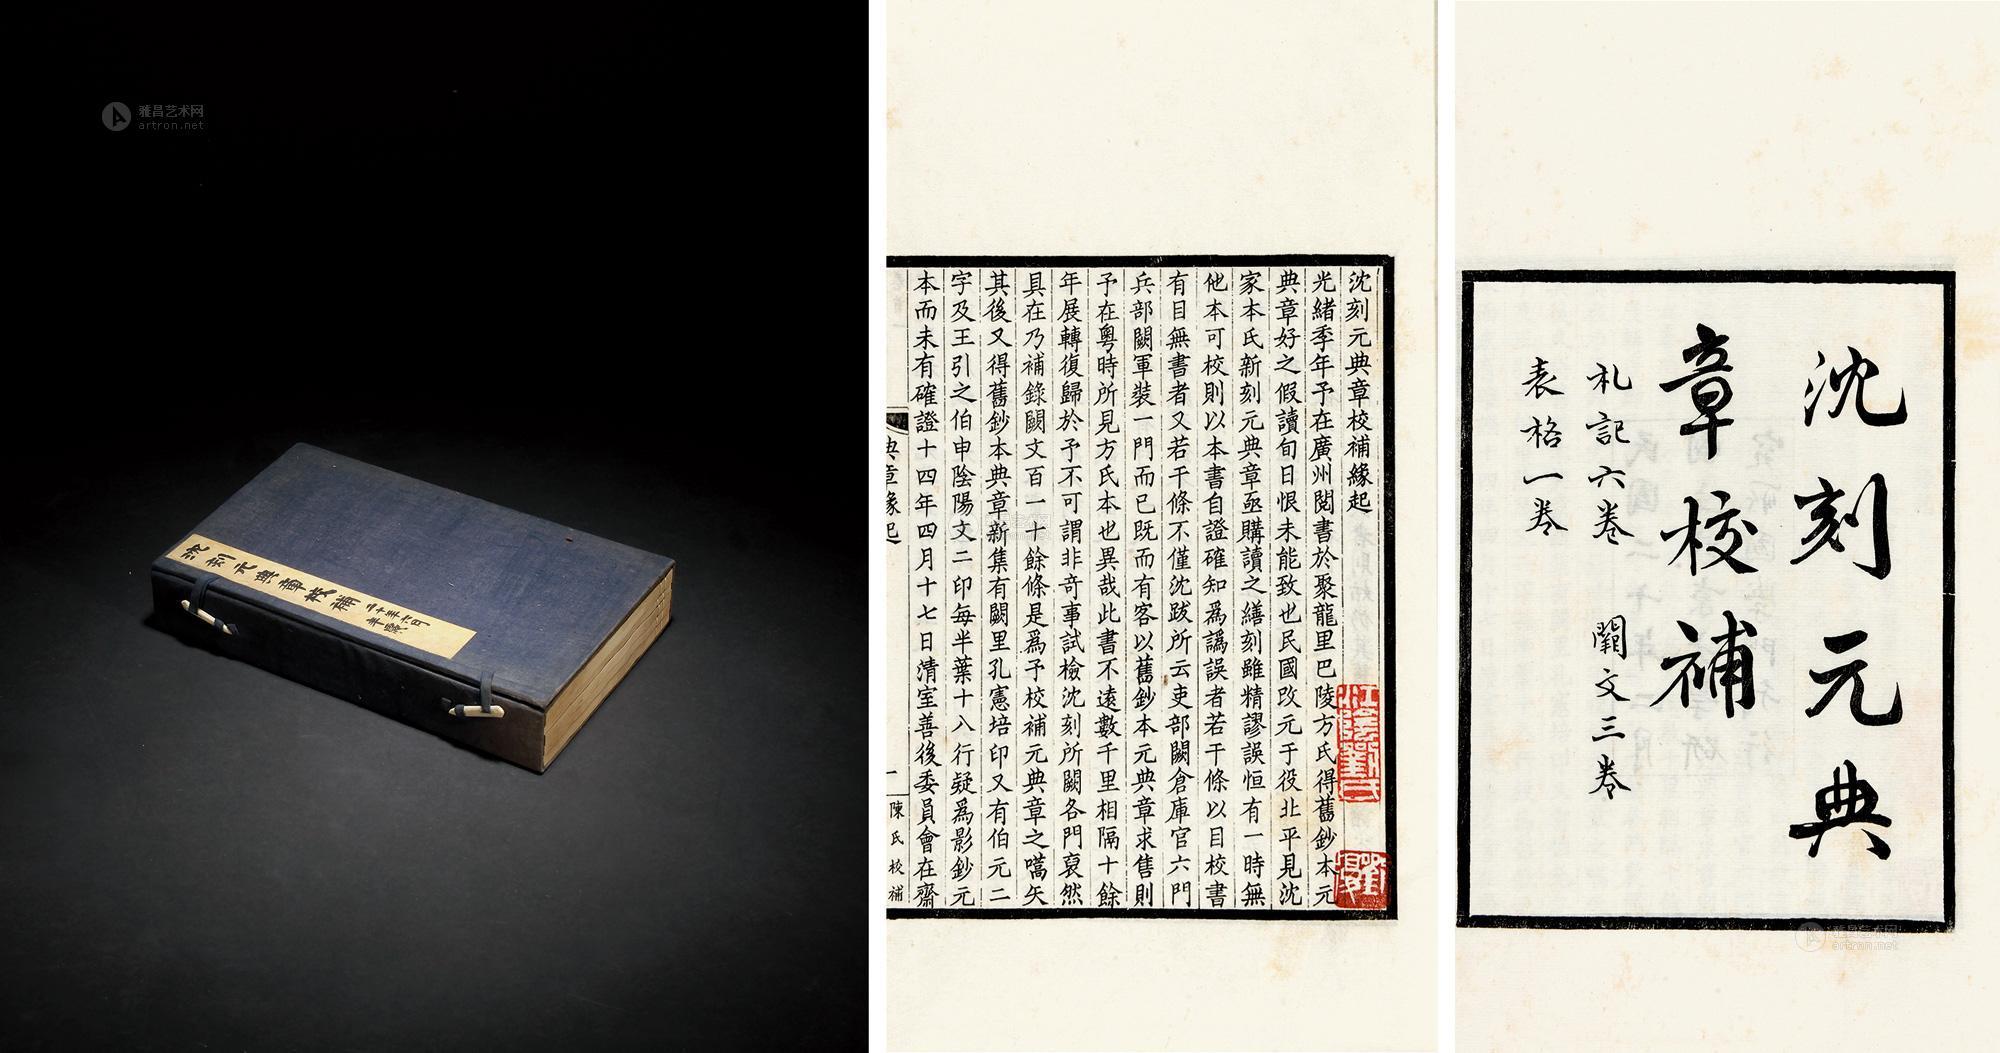 雅昌艺术网
artron.net
沈刻元典章校補
二十年六月
沈刻元典章校補緣起
光緒季年予在廣州閱書於聚龍里巴陵方氏得舊鈔本元
典章好之假讀旬日恨未能致也民國改元于役北平見沈
家本氏新刻元典章亟購讀之繕刻雖精謬誤恒有一時無
他本可校則以本書自證確知爲譌誤者若干條以目校書
有目無書者又若干條不僅沈跋所云吏部闕倉庫官六門
兵部闕軍裝一門而已既而有客以舊鈔本元典章求售則
予在粵時所見方氏本也異哉此書不遠數千里相隔十餘
年展轉復歸於予不可謂非奇事試檢沈刻所闕各門裒然
具在乃補錄闕文百一十餘條是爲予校補元典章之嚆矢
其後又得舊鈔本典章新集有闕里孔憲培印又有伯元二
字及王引之伯申陰陽文二印每半葉十八行疑爲影鈔元
本而未有確證十四年四月十七日清室善後委員會在齋
典章緣起
一
陳氏校補
沈刻元典
章校補
札記六卷 闕文三卷
表格一卷
雅昌艺术网
artron.net